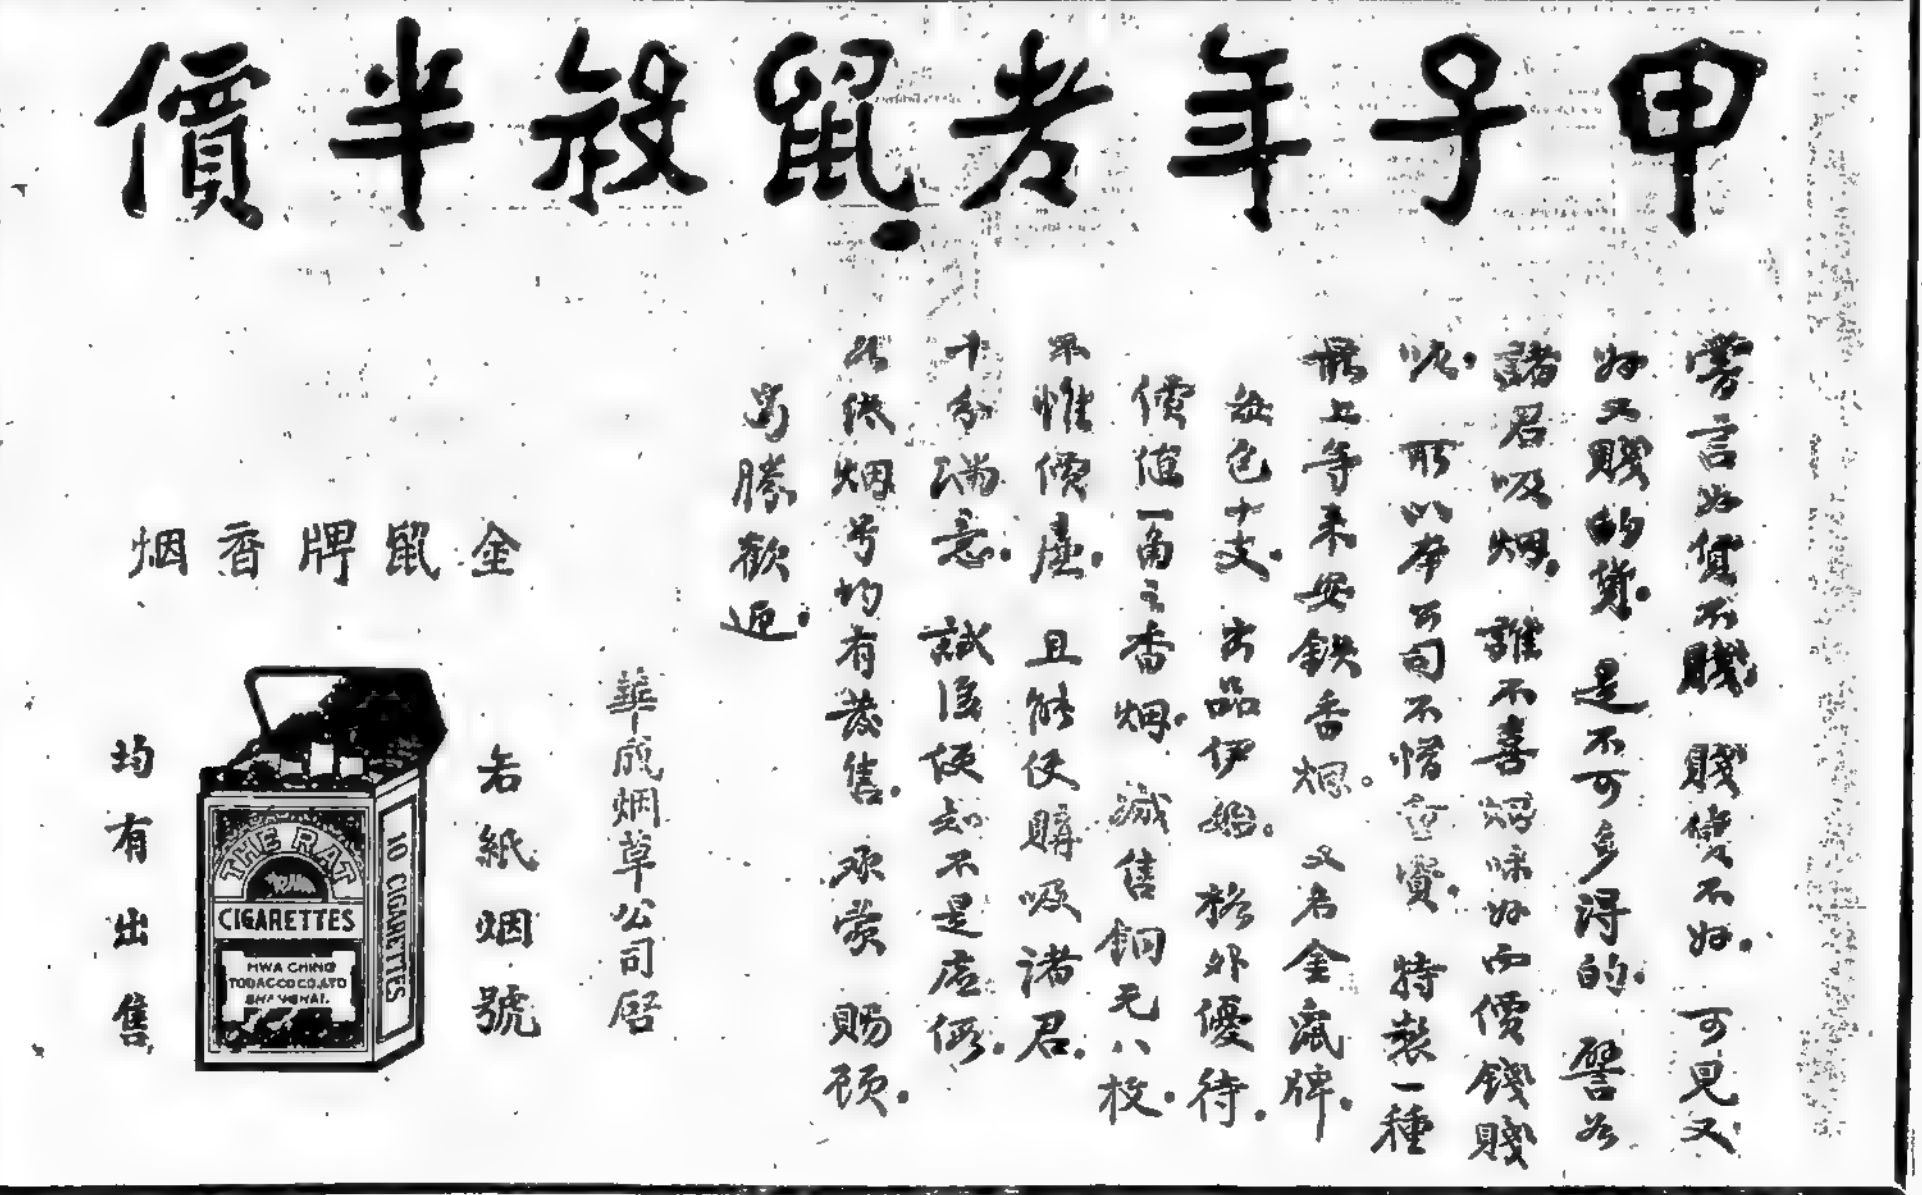 甲子年老鼠殺半價
常言好貨不賤 賤貨不好.可見又
好又賤的貨.是不可多得的.譬如
諸君吸烟.誰不喜烟味好而價錢賤
呢.所以本公司不惜重資.特製一種
最上等來安鉄香烟。又名金鼠牌.
每包十支.出品伊始。格外優待.
價值一角之香烟.減售銅元八枚.
不惟價廉.且能使購吸諸君.
十分滿意.試後便知不是虛假.
各紙烟号均有發售.承蒙 賜顧.
曷勝歡迎.
華成烟草公司啓
金鼠牌香烟
各紙烟號
均有出售
THE RAT
CIGARETTES
HWA CHING
TOBACCO CO., LTD
SHANGHAI.
10 CIGARETTES